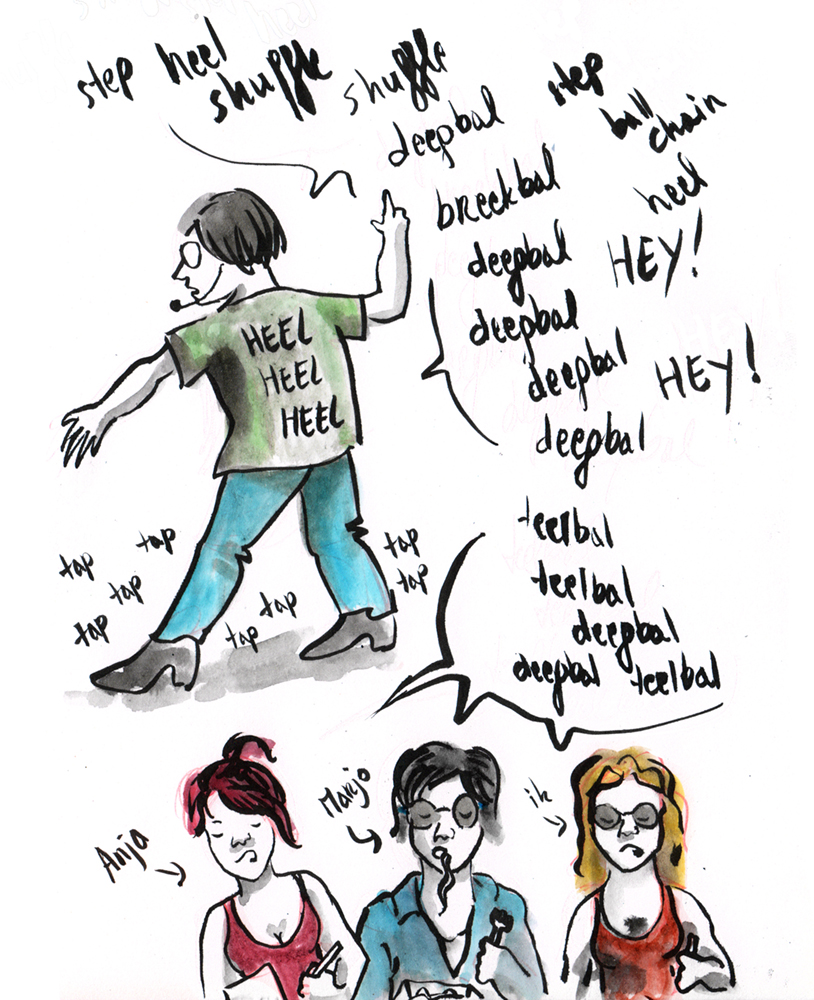 step heel
shuffle
shuffle
deepbal
breekbal
deepbal
deepbal
deepbal
deepbal
step
ball
chain
heel
HEY!
HEY!
HEEL
HEEL
HEEL
tap
tap
tap
tap
tap
tap
tap
tap
teelbal
teelbal
deepbal
deepbal teelbal
Anja
Marjo
ik